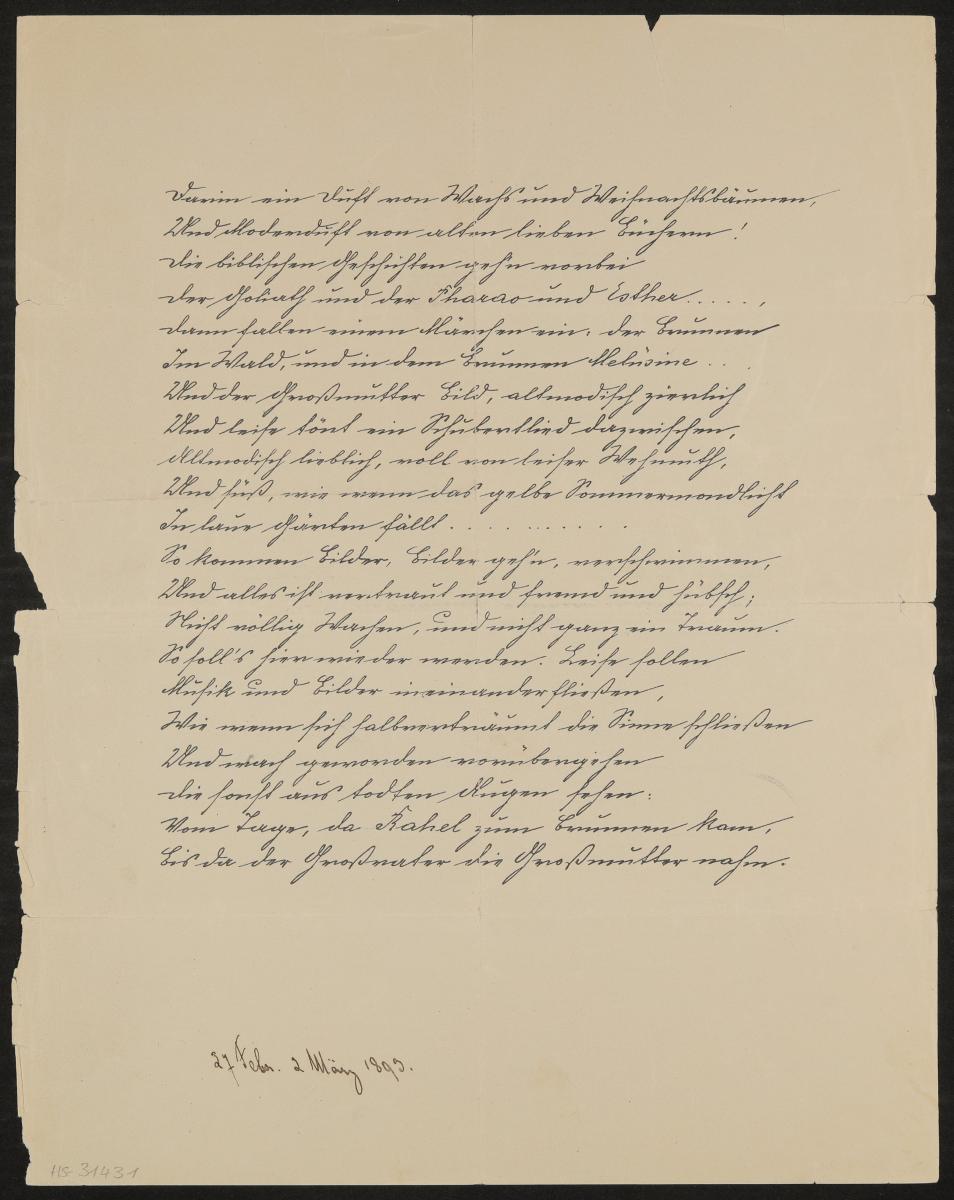 Darin ein Duft von Wachs und Weihnachtsbäumen,
Und Moderduft von alten lieben Büchern!
Die biblischen Geschichten geh'n vorbei
Der Goliath und der Pharao und Esther.....,
Dann fallen einem Märchen ein: der Brunnen
Im Wald, und in dem Brunnen Melusine . . .
Und der Großmutter Bild, altmodisch zierlich
Und leise tönt ein Schubertlied dazwischen,
Altmodisch lieblich, voll von leiser Wehmuth,
Und süß, wie wenn das gelbe Sommermondlicht
In laue Gärten fällt . . . . . . . . . .
So kommen Bilder, Bilder geh'n, verschwimmen,
Und alles ist vertraut und fremd und hübsch;
Nicht völlig Wachen, und nicht ganz ein Traum.
So soll's hier wieder werden. Leise sollen
Musik und Bilder ineinanderfließen,
Wie wenn sich halbverträumt die Sinne schließen
Und wach geworden vorübergehen
Die sonst aus todten Augen sehen:
Vom Tage, da Rahel zum Brunnen kam,
Bis da der Großvater die Großmutter nahm.
27 Febr. 2 März 1893.
HS-31431